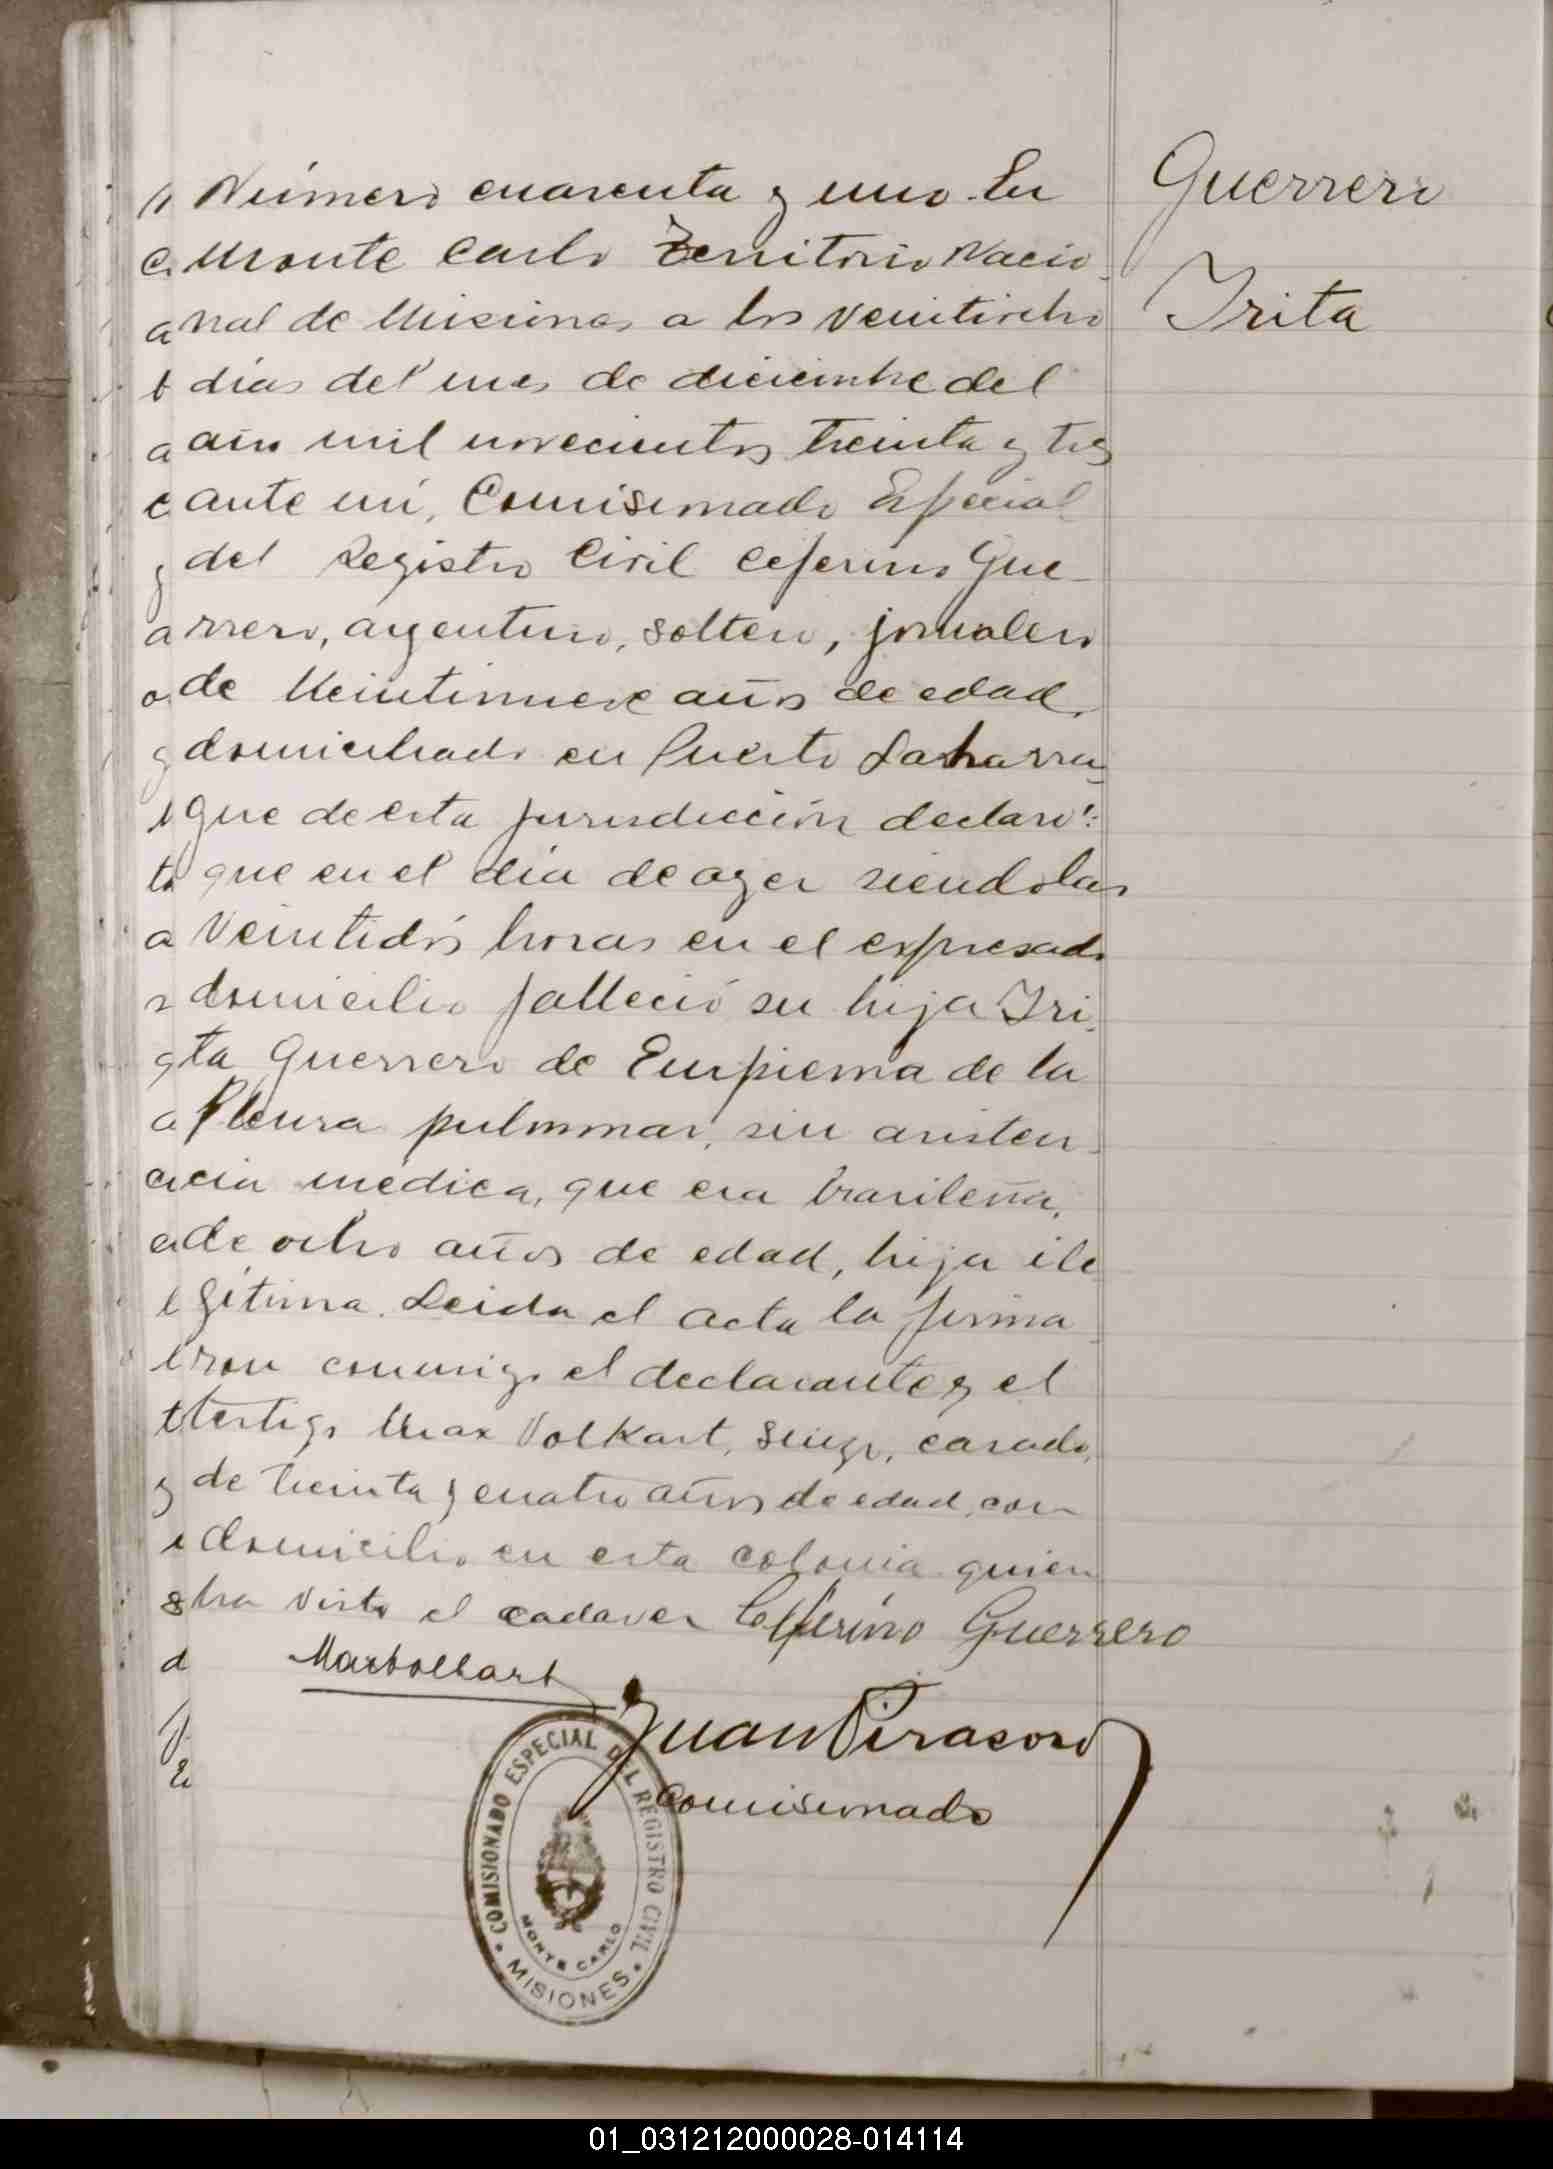 Guerrero
Irita
Número cuarenta y uno. En
Monte Carlo Territorio Nacio-
nal de Misiones a los veintiocho
días del mes de diciembre del
año mil novecientos treinta y tres
ante mí, Comisionado Especial
del Registro Civil Ceferino Gue-
rrero, argentino, soltero, jornalero
de veintinueve años de edad,
domiciliado en Puerto Laharra-
gue de esta jurisdicción declaró:
que en el día de ayer siendo las
veintidós horas en el expresado
domicilio falleció su hija Iri-
ta Guerrero de Empiema de la
Pleura pulmonar, sin asisten-
cia médica, que era brasileña,
de ocho años de edad, hija ile
gítima. Leida el acta la firma-
ron conmigo el declarante y el
testigo Max Volkart, suizo, casado,
de treinta y cuatro años de edad, con
domicilio en esta colonia quien
ha visto el cadaver Ceferino Guerrero
Max Volkart
Juan Pirasoro
Comisionado
COMISIONADO ESPECIAL DEL REGISTRO CIVIL
MONTE CARLO
MISIONES
01_031212000028-014114